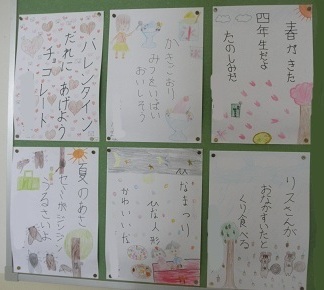 春がきた
四年生だよ
たのしみだ
かきごおり
みつをいっぱい
おいしそう
バレンタイン
だれに あげよう
チョコレート
リスさんが
おなかすいたと
くり食べる
ひなまつり
ひな人形
かわいいな
夏のあさ
うるさいよ